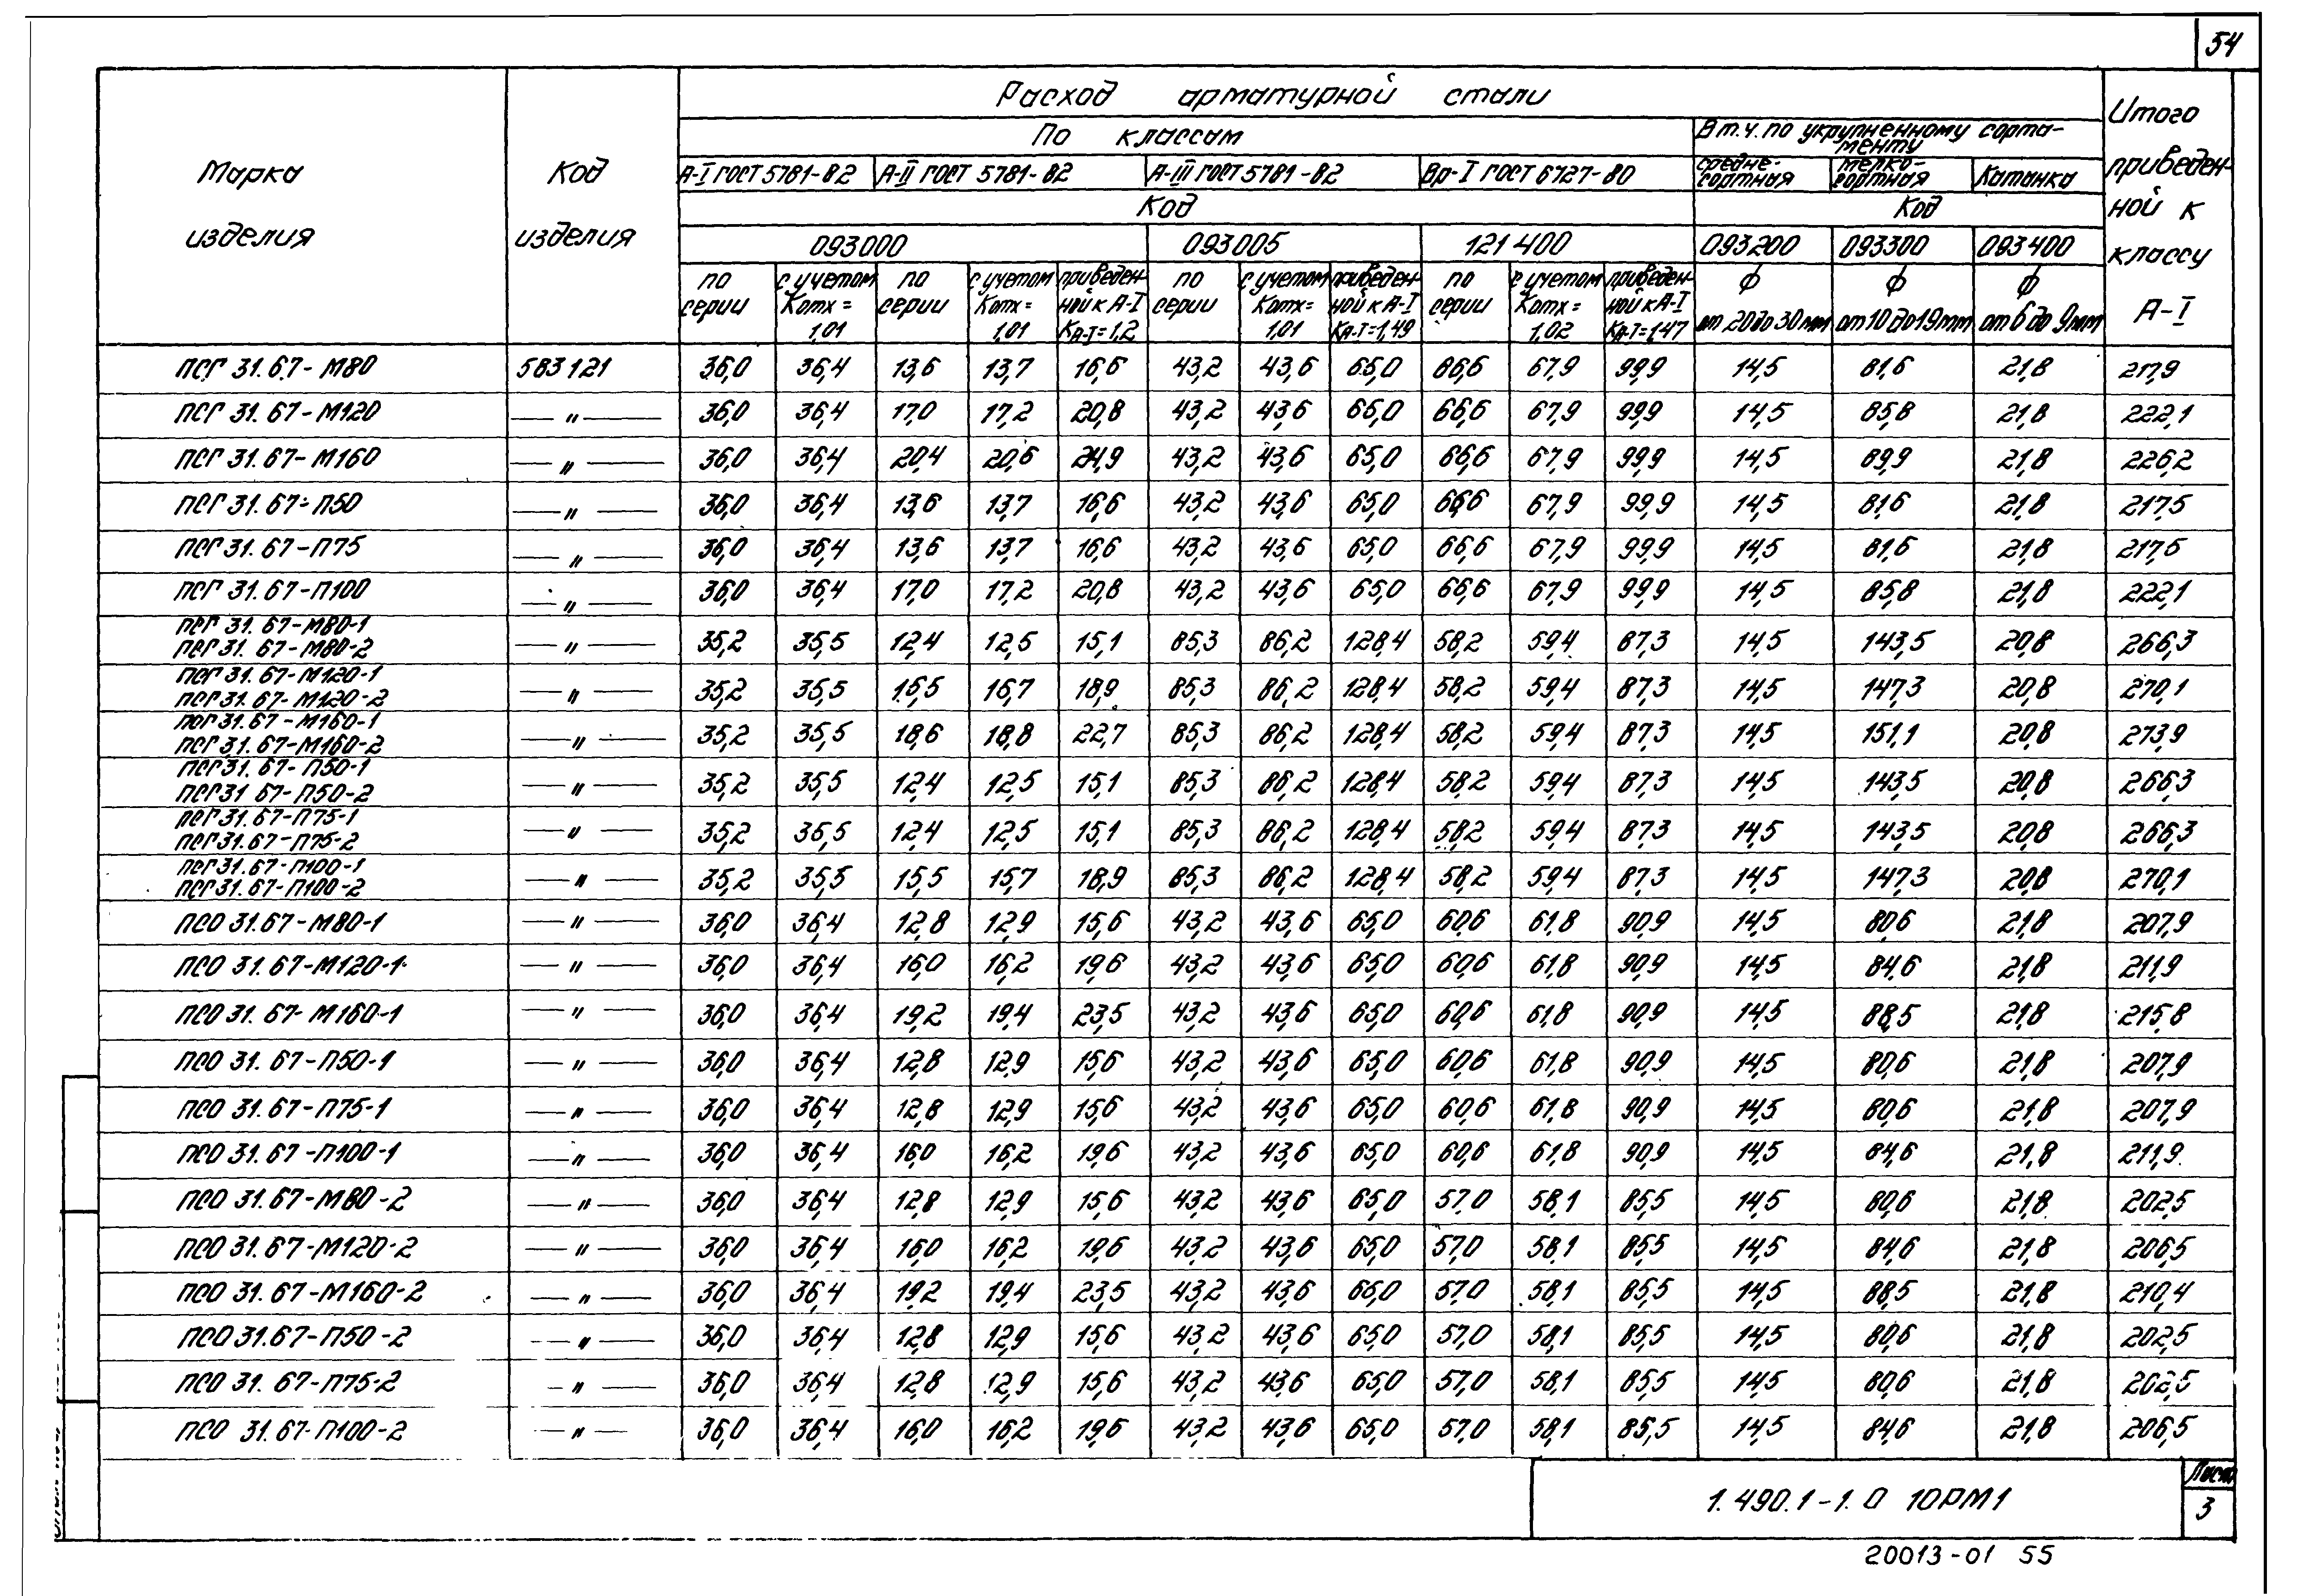 54
Расход арматурной стали
Итого приведенной к классу А-I
По классам
В т.ч. по укрупненному сортаменту
Марка изделия
Код изделия
А-I ГОСТ 5781-82 А-II ГОСТ 5781-82 А-III ГОСТ 5781-82 Вр-I ГОСТ 6727-80 среднесортная мелкосортная Катанка
Код Код
093000 093005 121400 093200 093300 093400
по серии с учетом Котх = 1,01 по серии с учетом Котх = 1,01 приведенной к А-I КА-I = 1,2 по серии с учетом Котх = 1,01 приведенной к А-I КА-I = 1,49 по серии с учетом Котх = 1,02 приведенной к А-I КА-I = 1,47 ф от 20 до 30 мм ф от 10 до 19 мм ф от 6 до 9 мм
ПСГ 31.67-М80 583121 36,0 36,4 13,6 13,7 16,6 43,2 43,6 65,0 66,6 67,9 99,9 14,5 81,6 21,8 217,9
ПСГ 31.67-М120 — " — 36,0 36,4 17,0 17,2 20,8 43,2 43,6 65,0 66,6 67,9 99,9 14,5 85,8 21,8 222,1
ПСГ 31.67-М160 — " — 36,0 36,4 20,4 20,6 24,9 43,2 43,6 65,0 66,6 67,9 99,9 14,5 89,9 21,8 226,2
ПСГ 31.67-П50 — " — 36,0 36,4 13,6 13,7 16,6 43,2 43,6 65,0 66,6 67,9 99,9 14,5 81,6 21,8 217,5
ПСГ 31.67-П75 — " — 36,0 36,4 13,6 13,7 16,6 43,2 43,6 65,0 66,6 67,9 99,9 14,5 81,6 21,8 217,5
ПСГ 31.67-П100 — " — 36,0 36,4 17,0 17,2 20,8 43,2 43,6 65,0 66,6 67,9 99,9 14,5 85,8 21,8 222,1
ПСГ 31.67-М80-1
ПСГ 31.67-М80-2 — " — 35,2 35,5 12,4 12,5 15,1 85,3 86,2 128,4 58,2 59,4 87,3 14,5 143,5 20,8 266,3
ПСГ 31.67-М120-1
ПСГ 31.67-М120-2 — " — 35,2 35,5 15,5 15,7 18,9 85,3 86,2 128,4 58,2 59,4 87,3 14,5 147,3 20,8 270,1
ПСГ 31.67-М160-1
ПСГ 31.67-М160-2 — " — 35,2 35,5 18,6 18,8 22,7 85,3 86,2 128,4 58,2 59,4 87,3 14,5 151,1 20,8 273,9
ПСГ 31.67-П50-1
ПСГ 31 67-П50-2 — " — 35,2 35,5 12,4 12,5 15,1 85,3 86,2 128,4 58,2 59,4 87,3 14,5 143,5 20,8 266,3
ПСГ 31.67-П75-1
ПСГ 31.67-П75-2 — " — 35,2 35,5 12,4 12,5 15,1 85,3 86,2 128,4 58,2 59,4 87,3 14,5 143,5 20,8 266,3
ПСГ 31.67-П100-1
ПСГ 31.67-П100-2 — " — 35,2 35,5 15,5 15,7 18,9 85,3 86,2 128,4 58,2 59,4 87,3 14,5 147,3 20,8 270,1
ПСО 31.67-М80-1 — " — 36,0 36,4 12,8 12,9 15,6 43,2 43,6 65,0 60,6 61,8 90,9 14,5 80,6 21,8 207,9
ПСО 31.67-М120-1 — " — 36,0 36,4 16,0 16,2 19,6 43,2 43,6 65,0 60,6 61,8 90,9 14,5 84,6 21,8 211,9
ПСО 31.67-М160-1 — " — 36,0 36,4 19,2 19,4 23,5 43,2 43,6 65,0 60,6 61,8 90,9 14,5 88,5 21,8 215,8
ПСО 31.67-П50-1 — " — 36,0 36,4 12,8 12,9 15,6 43,2 43,6 65,0 60,6 61,8 90,9 14,5 80,6 21,8 207,9
ПСО 31.67-П75-1 — " — 36,0 36,4 12,8 12,9 15,6 43,2 43,6 65,0 60,6 61,8 90,9 14,5 80,6 21,8 207,9
ПСО 31.67-П100-1 — " — 36,0 36,4 16,0 16,2 19,6 43,2 43,6 65,0 60,6 61,8 90,9 14,5 84,6 21,8 211,9
ПСО 31.67-М80-2 — " — 36,0 36,4 12,8 12,9 15,6 43,2 43,6 65,0 57,0 58,1 85,5 14,5 80,6 21,8 202,5
ПСО 31.67-М120-2 — " — 36,0 36,4 16,0 16,2 19,6 43,2 43,6 65,0 57,0 58,1 85,5 14,5 84,6 21,8 206,5
ПСО 31.67-М160-2 — " — 36,0 36,4 19,2 19,4 23,5 43,2 43,6 65,0 57,0 58,1 85,5 14,5 88,5 21,8 210,4
ПСО 31.67-П50-2 — " — 36,0 36,4 12,8 12,9 15,6 43,2 43,6 65,0 57,0 58,1 85,5 14,5 80,6 21,8 202,5
ПСО 31.67-П75-2 — " — 36,0 36,4 12,8 12,9 15,6 43,2 43,6 65,0 57,0 58,1 85,5 14,5 80,6 21,8 202,5
ПСО 31.67-П100-2 — " — 36,0 36,4 16,0 16,2 19,6 43,2 43,6 65,0 57,0 58,1 85,5 14,5 84,6 21,8 206,5
1.490.1-1.0 10РМ1
Лист
3
20013-01 55